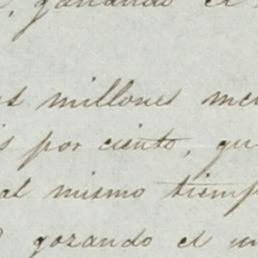 ganando el
millones
por ciento,
al mismo tiemp
gozando el un